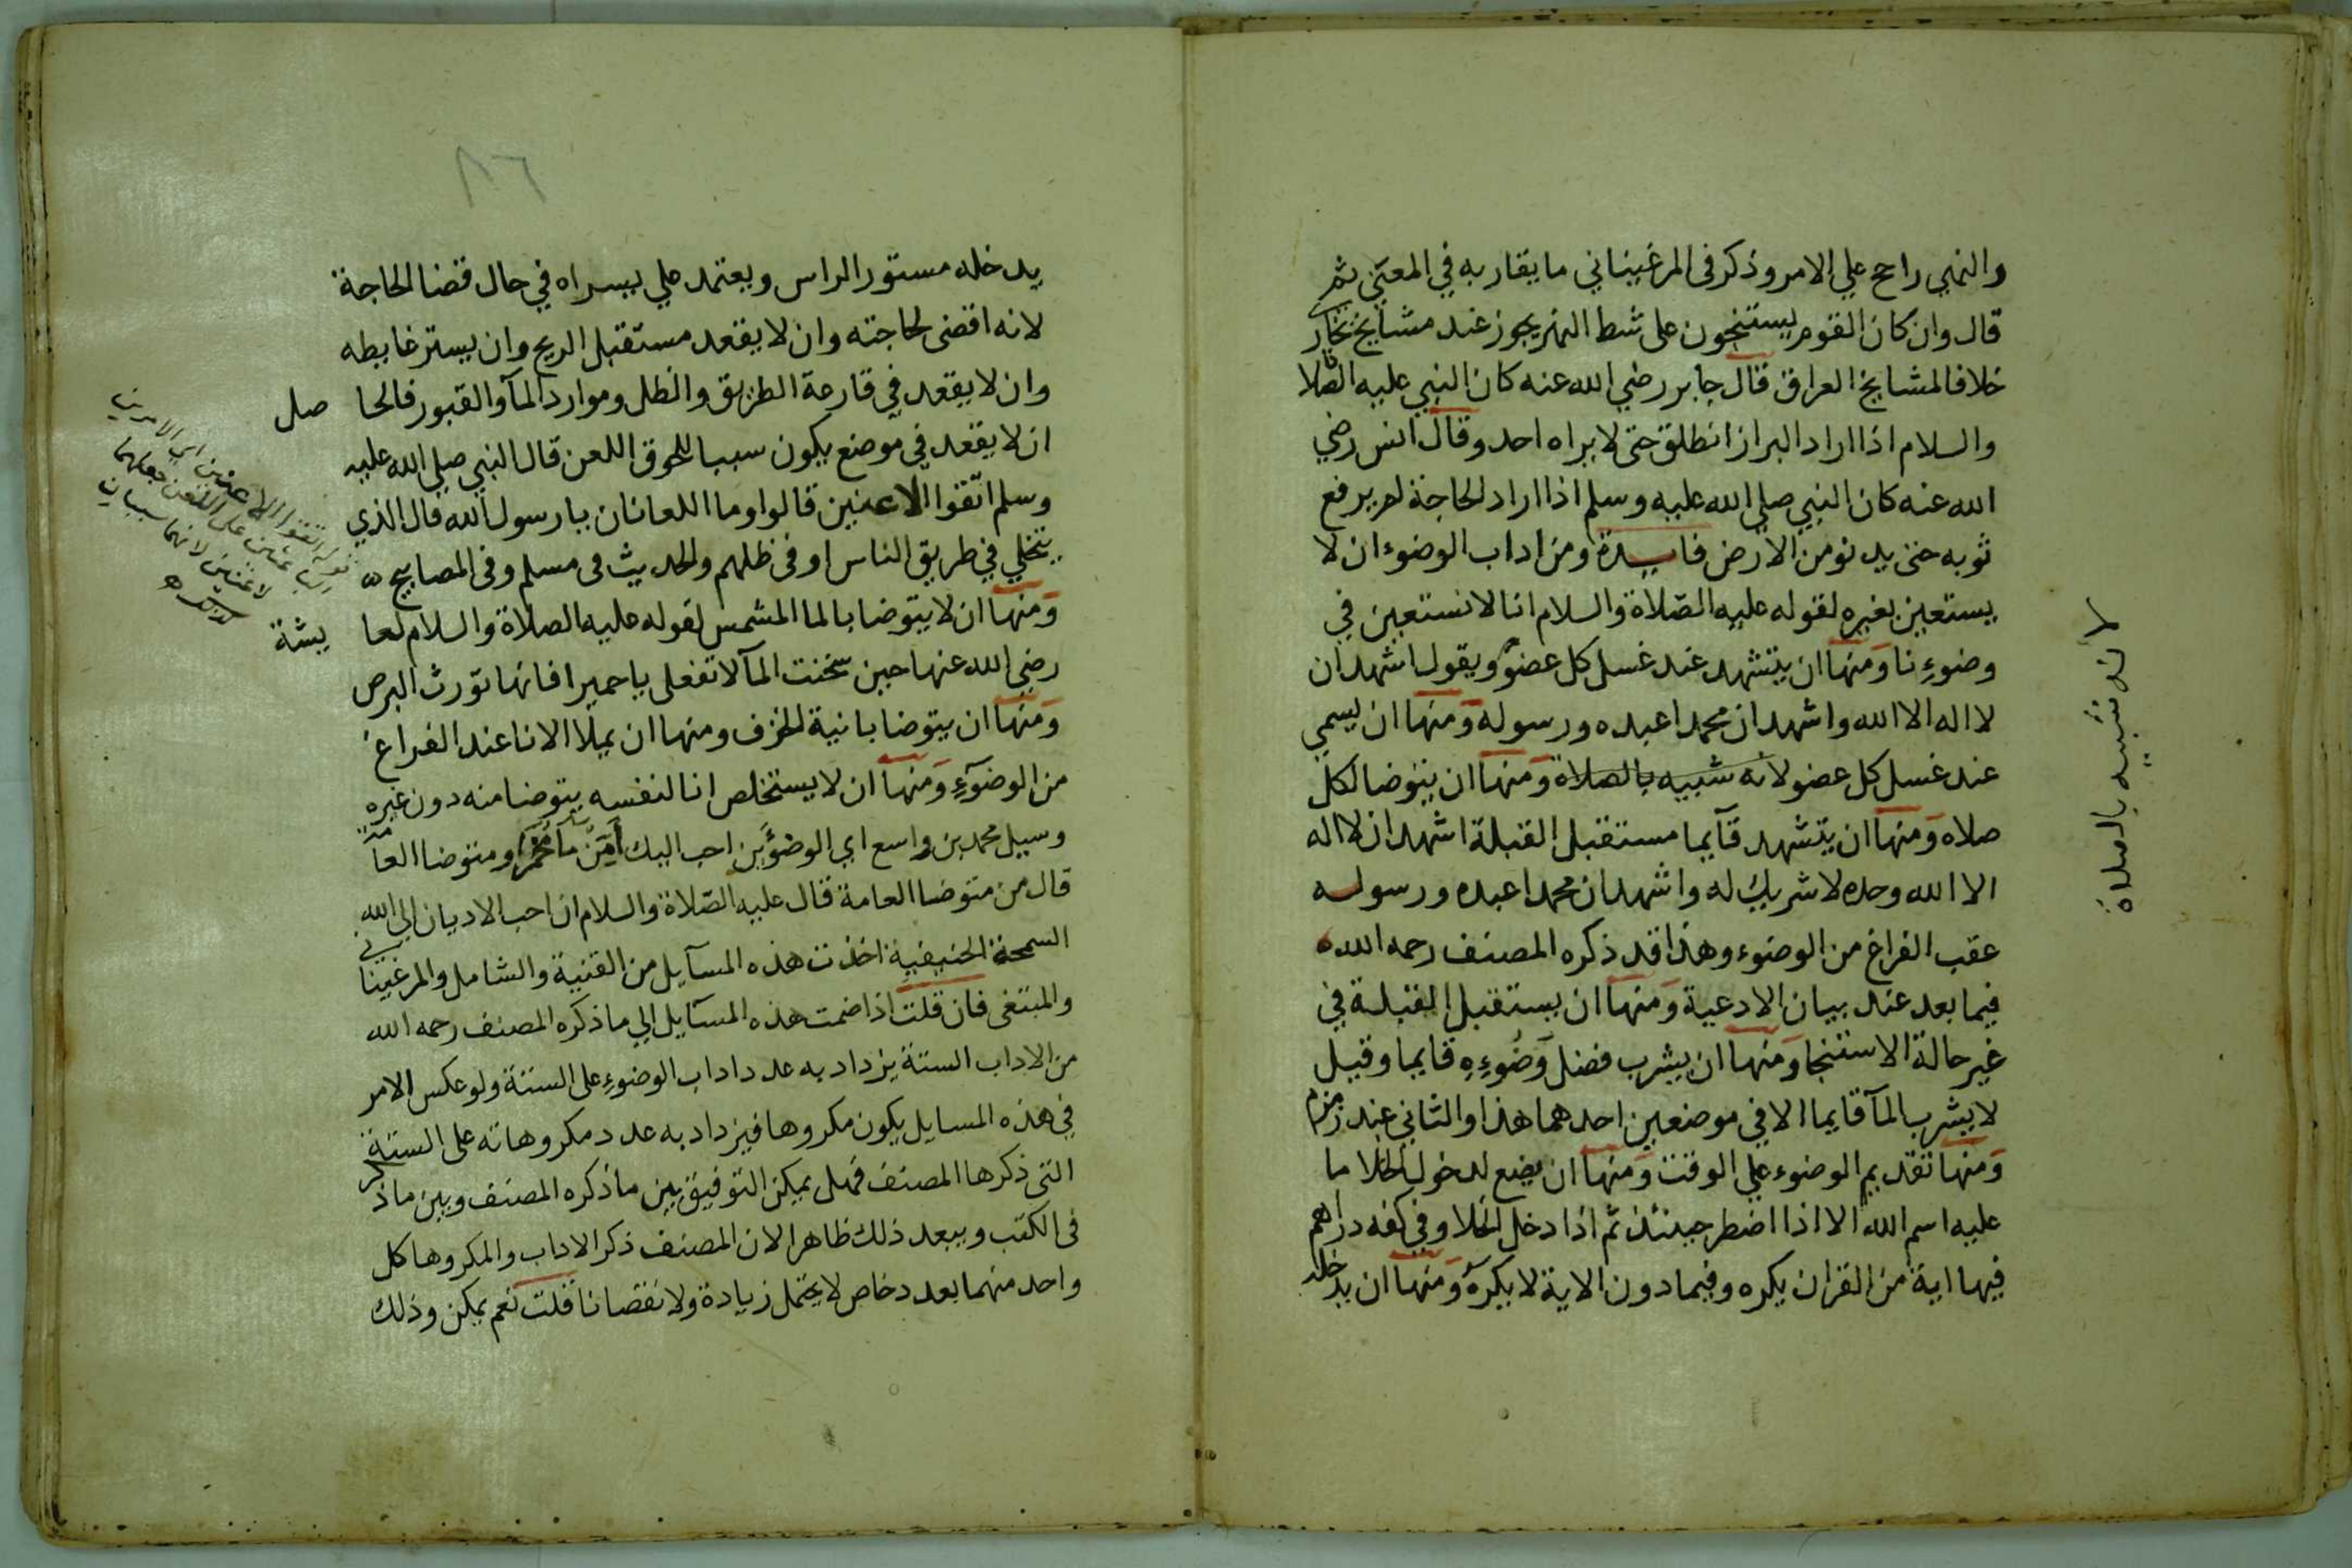 والنهي راجح علي الامر وذكر فى المرغيناني ما يقاربه في المعنى ثم
قال وان كان القوم يستنجون على شط النهر يجوز عند مشايخ بخارى
خلافا لمشايخ العراق قال جابر رضي الله عنه كان النبي عليه الصلاة
والسلام اذا اراد البراز انطلق حتى لا يراه احد وقال انس رضي
الله عنه كان النبي صلي الله عليه وسلم اذا اراد الحاجة لم يرفع
ثوبه حتى يدنو من الارض فايدة ومن اداب الوضوء ان لا
يستعين بغيره لقوله عليه الصلاة والسلام انا لا نستعين في
وضوءِنا ومنها ان يتشهد عند غسل كل عضو ويقول اشهد ان
لا اله الا الله واشهد ان محمدا عبده ورسوله ومنها ان يسمي
عند غسل كل عضو لانه شبيه بالصلاة ومنها ان يتوضا لكل
صلاه ومنها ان يتشهد قآيما مستقبل القبلة اشهد ان لا اله
الا الله وحده لا شريك له واشهد ان محمدا عبده ورسوله
عقب الفراغ من الوضوء وهذا قد ذكره المصنف رحمه الله
فيما بعد عند بيان الادعية ومنها ان يستقبل القبلة في
غير حالة الاستنجا ومنها ان يشرب فضل وَضُوءِهِ قايما وقيل
لا يشرب المآ قايما الا في موضعين احدهما هذا والثاني عند زمزم
ومنها تقديم الوضوء علي الوقت ومنها ان يضع لدخول الخلا ما
عليه اسم الله الا اذا اضطر حينئذ ثم اذا دخل الخلا وفي كفه دراهم
فيها اية من القران يكره وفيما دون الاية لا يكره ومنها ان يدخله
لانه شبيه بالصلاة
٨٦
يدخله مستور الراس ويعتمد علي يسراه في حال قضا الحاجة
لانه اقضى لحاجته وان لا يقعد مستقبل الريح وان يستر غايطه
وان لا يقعد في قارعة الطريق والظل وموارد المآ والقبور فالحا صل
ان لا يقعد في موضع يكون سببا للحوق اللعن قال النبي صلي الله عليه
وسلم اتقوا الاعنين قالوا وما اللعانان يا رسول الله قال الذي
يتخلي في طريق الناس او في ظلهم والحديث فى مسلم وفى المصابيح
ومنها ان لا يتوضا بالما المشمس لقوله عليه الصلاة والسلام لعا يشة
رضي الله عنها حين سخنت المآ لا تفعلى يا حميرا فانها تورث البرص
ومنها ان يتوضا بانية الخزف ومنها ان يملا الانا عند الفراغ
من الوضوءِ ومنها ان لا يستخلص انا لنفسه يتوضا منه دون غيره
وسيل محمد بن واسع اي الوضوَين احب اليك أمِن مآ مُخَمَّر او متوضا العامة
قال من متوضا العامة قال عليه الصلاة والسلام ان احب الاديان الي الله
السمحة الحنيفية اخذت هذه المسآيل من القنية والشامل والمرغيناني
والمبتغى فان قلت اذا ضمت هذه المسآيل الي ما ذكره المصنف رحمه الله
من الاداب الستة يزداد به عدد اداب الوضوءِ على الستة ولو عكس الامر
في هذه المسايل يكون مكروها فيزداد به عدد مكروهاته على الستة
التى ذكرها المصنف فهل يمكن التوفيق بين ما ذكره المصنف وبين ما ذكر
فى الكتب ويبعد ذلك ظاهرا لان المصنف ذكر الاداب والمكروها كل
واحد منهما بعدد خاص لا يحتمل زيادة ولا نقصانا قلت نعم يمكن وذلك
قوله اتقوا الاعنين اي الامرين
على اللعن جعلهما
لاعنين لانهما سببان